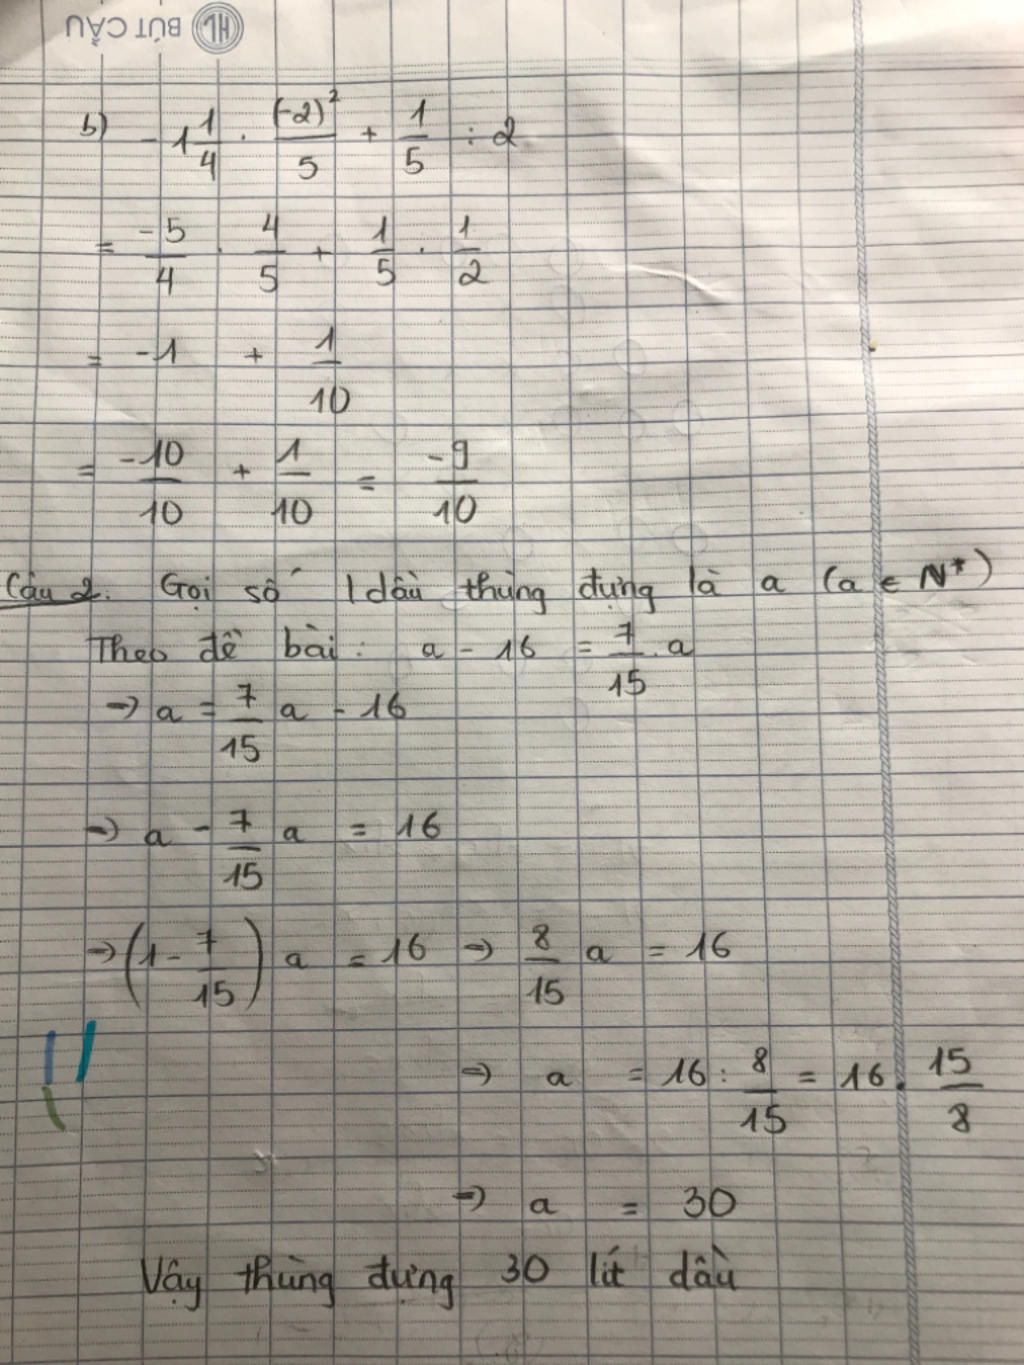 HL BÚT CẦU
b) -1 1/4 . (-2)²/5 + 1/5 : 2
= -5/4 . 4/5 + 1/5 . 1/2
= -1 + 1/10
= -10/10 + 1/10 = -9/10
Câu 2. Gọi số l dầu thùng đựng là a (a ∈ N*)
Theo đề bài: a - 16 = 7/15 . a
→ a = 7/15 a - 16
→ a - 7/15 a = 16
→ (1 - 7/15) a = 16 → 8/15 a = 16
→ a = 16 : 8/15 = 16 . 15/8
→ a = 30
Vậy thùng đựng 30 lít dầu